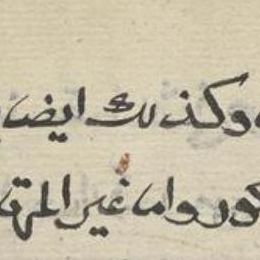 وكذلك ايضا
كور واما غير المتها